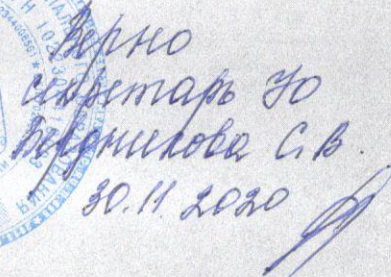 Верно
секретарь УО
Бердникова С.В.
30.11.2020